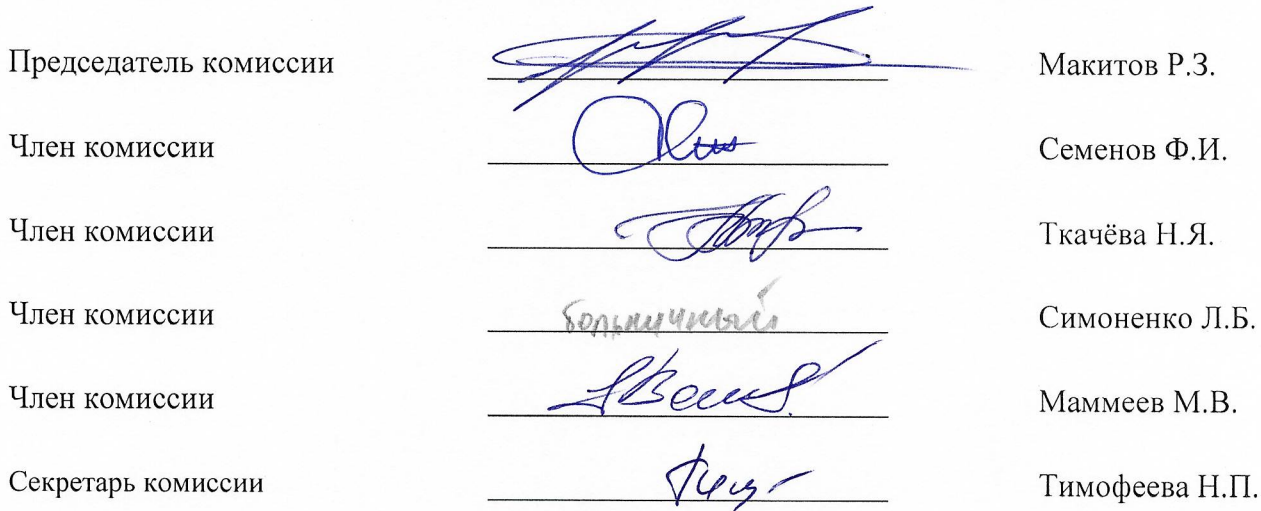 Председатель комиссии Макитов Р.З.
Член комиссии Семенов Ф.И.
Член комиссии Ткачёва Н.Я.
Член комиссии больничный Симоненко Л.Б.
Член комиссии Маммеев М.В.
Секретарь комиссии Тимофеева Н.П.